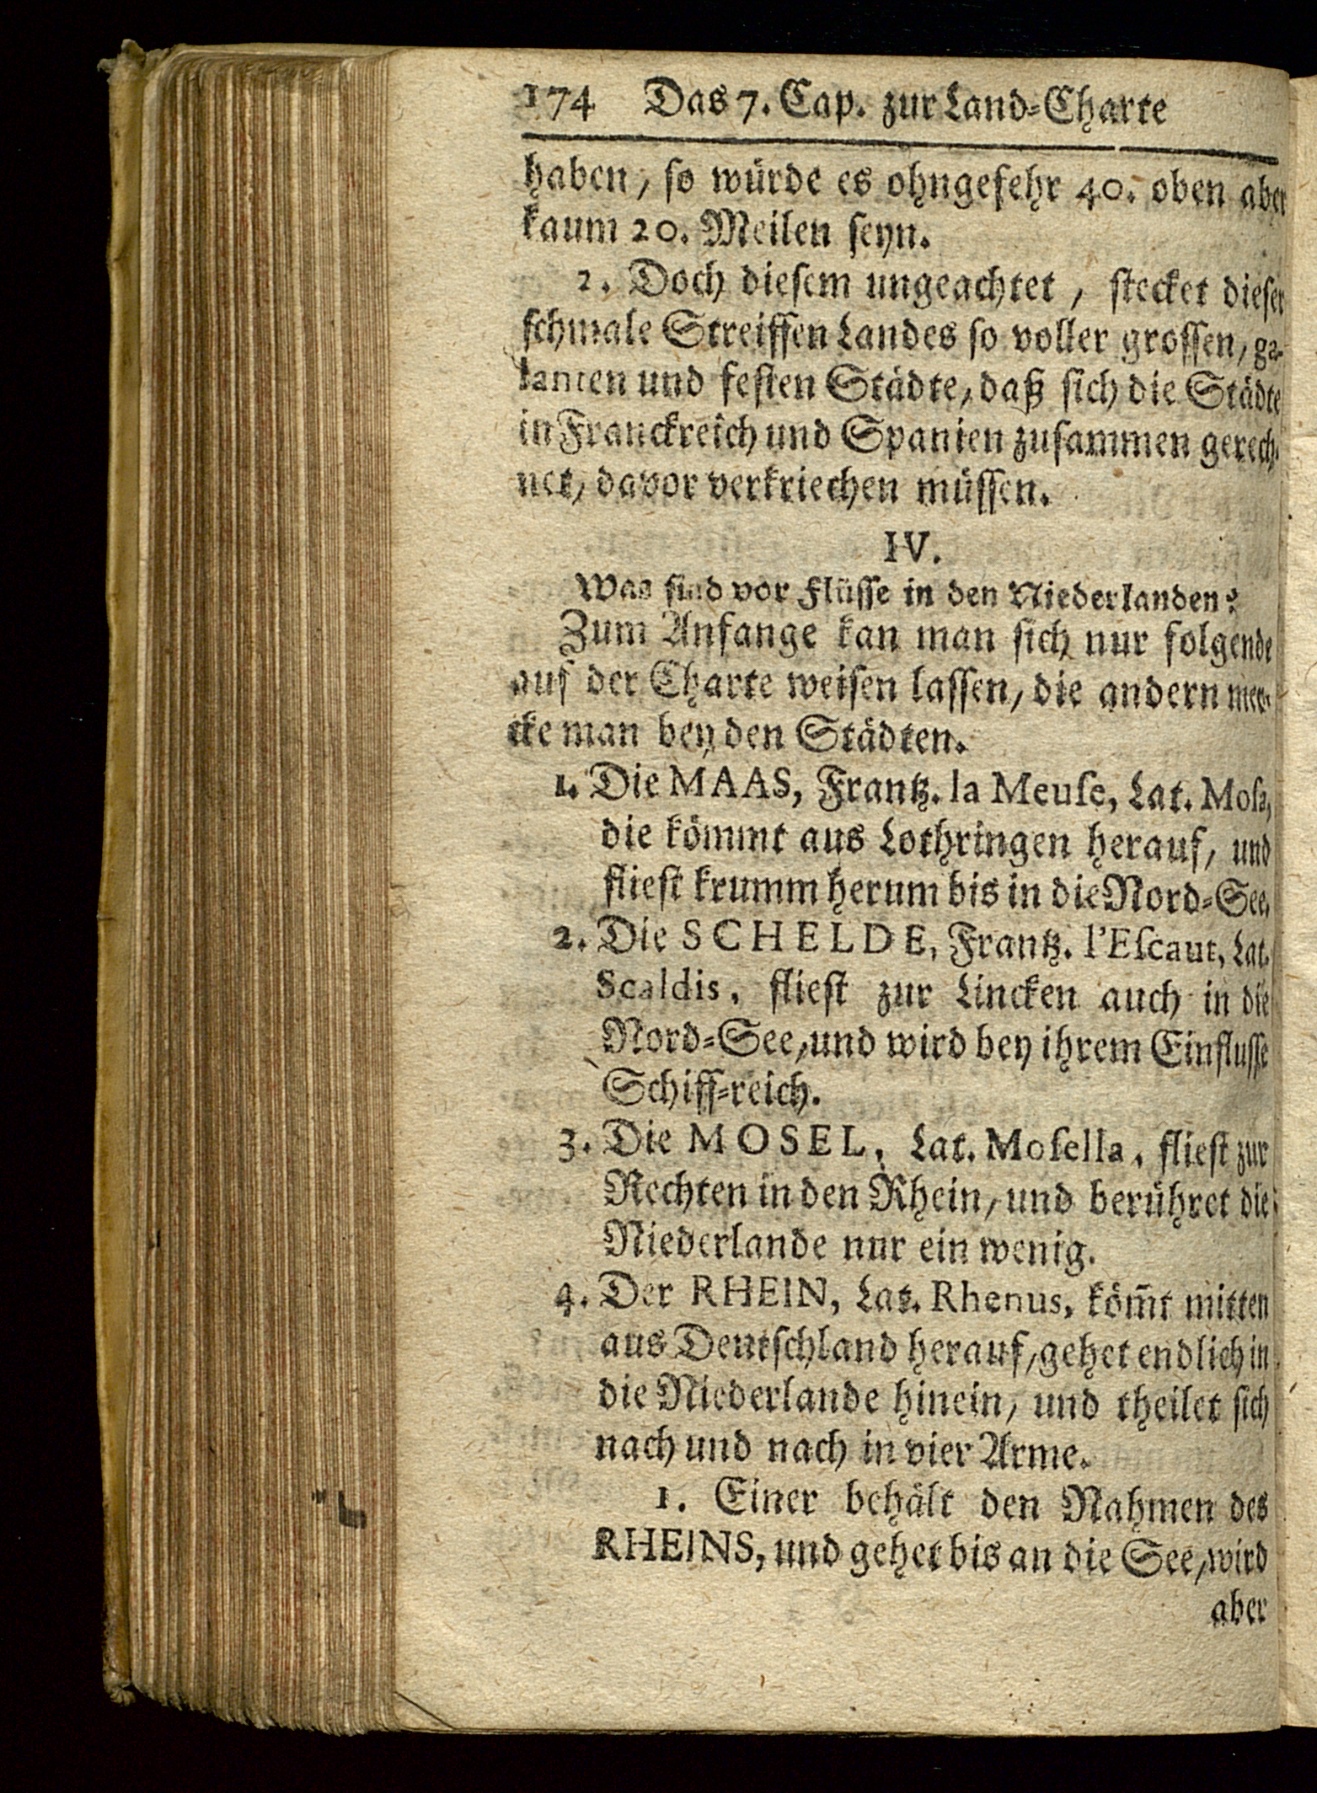 174 Das 7. Cap. zur Land-Charte
haben, so würde es ohngefehr 40. oben aber
kaum 20. Meilen seyn.
2. Doch diesem ungeachtet, stecket dieser
schmale Streiffen Landes so voller grossen, ga-
lanten und festen Städte, daß sich die Städte
in Franckreich und Spanien zusammen gerech-
net, davor verkriechen müssen.
IV.
Was sind vor Flüsse in den Niederlanden?
Zum Anfange kan man sich nur folgende
auf der Charte weisen lassen, die andern mer-
cke man bey den Städten.
1. Die MAAS, Frantz. la Meuse, Lat. Mosa,
die kömmt aus Lothringen herauf, und
fliest krumm herum bis in die Nord-See.
2. Die SCHELDE, Frantz. l'Escaut, Lat.
Scaldis, fliest zur Lincken auch in die
Nord-See, und wird bey ihrem Einflusse
Schiff-reich.
3. Die MOSEL, Lat. Mosella, fliest zur
Rechten in den Rhein, und berühret die
Niederlande nur ein wenig.
4. Der RHEIN, Lat. Rhenus, köm̃t mitten
aus Deutschland herauf, gehet endlich in
die Niederlande hinein, und theilet sich
nach und nach in vier Arme.
1. Einer behält den Nahmen des
RHEINS, und gehet bis an die See, wird
aber